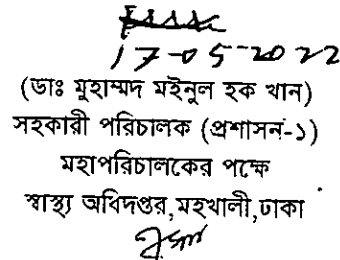 17-05-2022
(ডাঃ মুহাম্মদ মইনুল হক খান)
সহকারী পরিচালক (প্রশাসন-১)
মহাপরিচালকের পক্ষে
স্বাস্থ্য অধিদপ্তর,মহখালী,ঢাকা